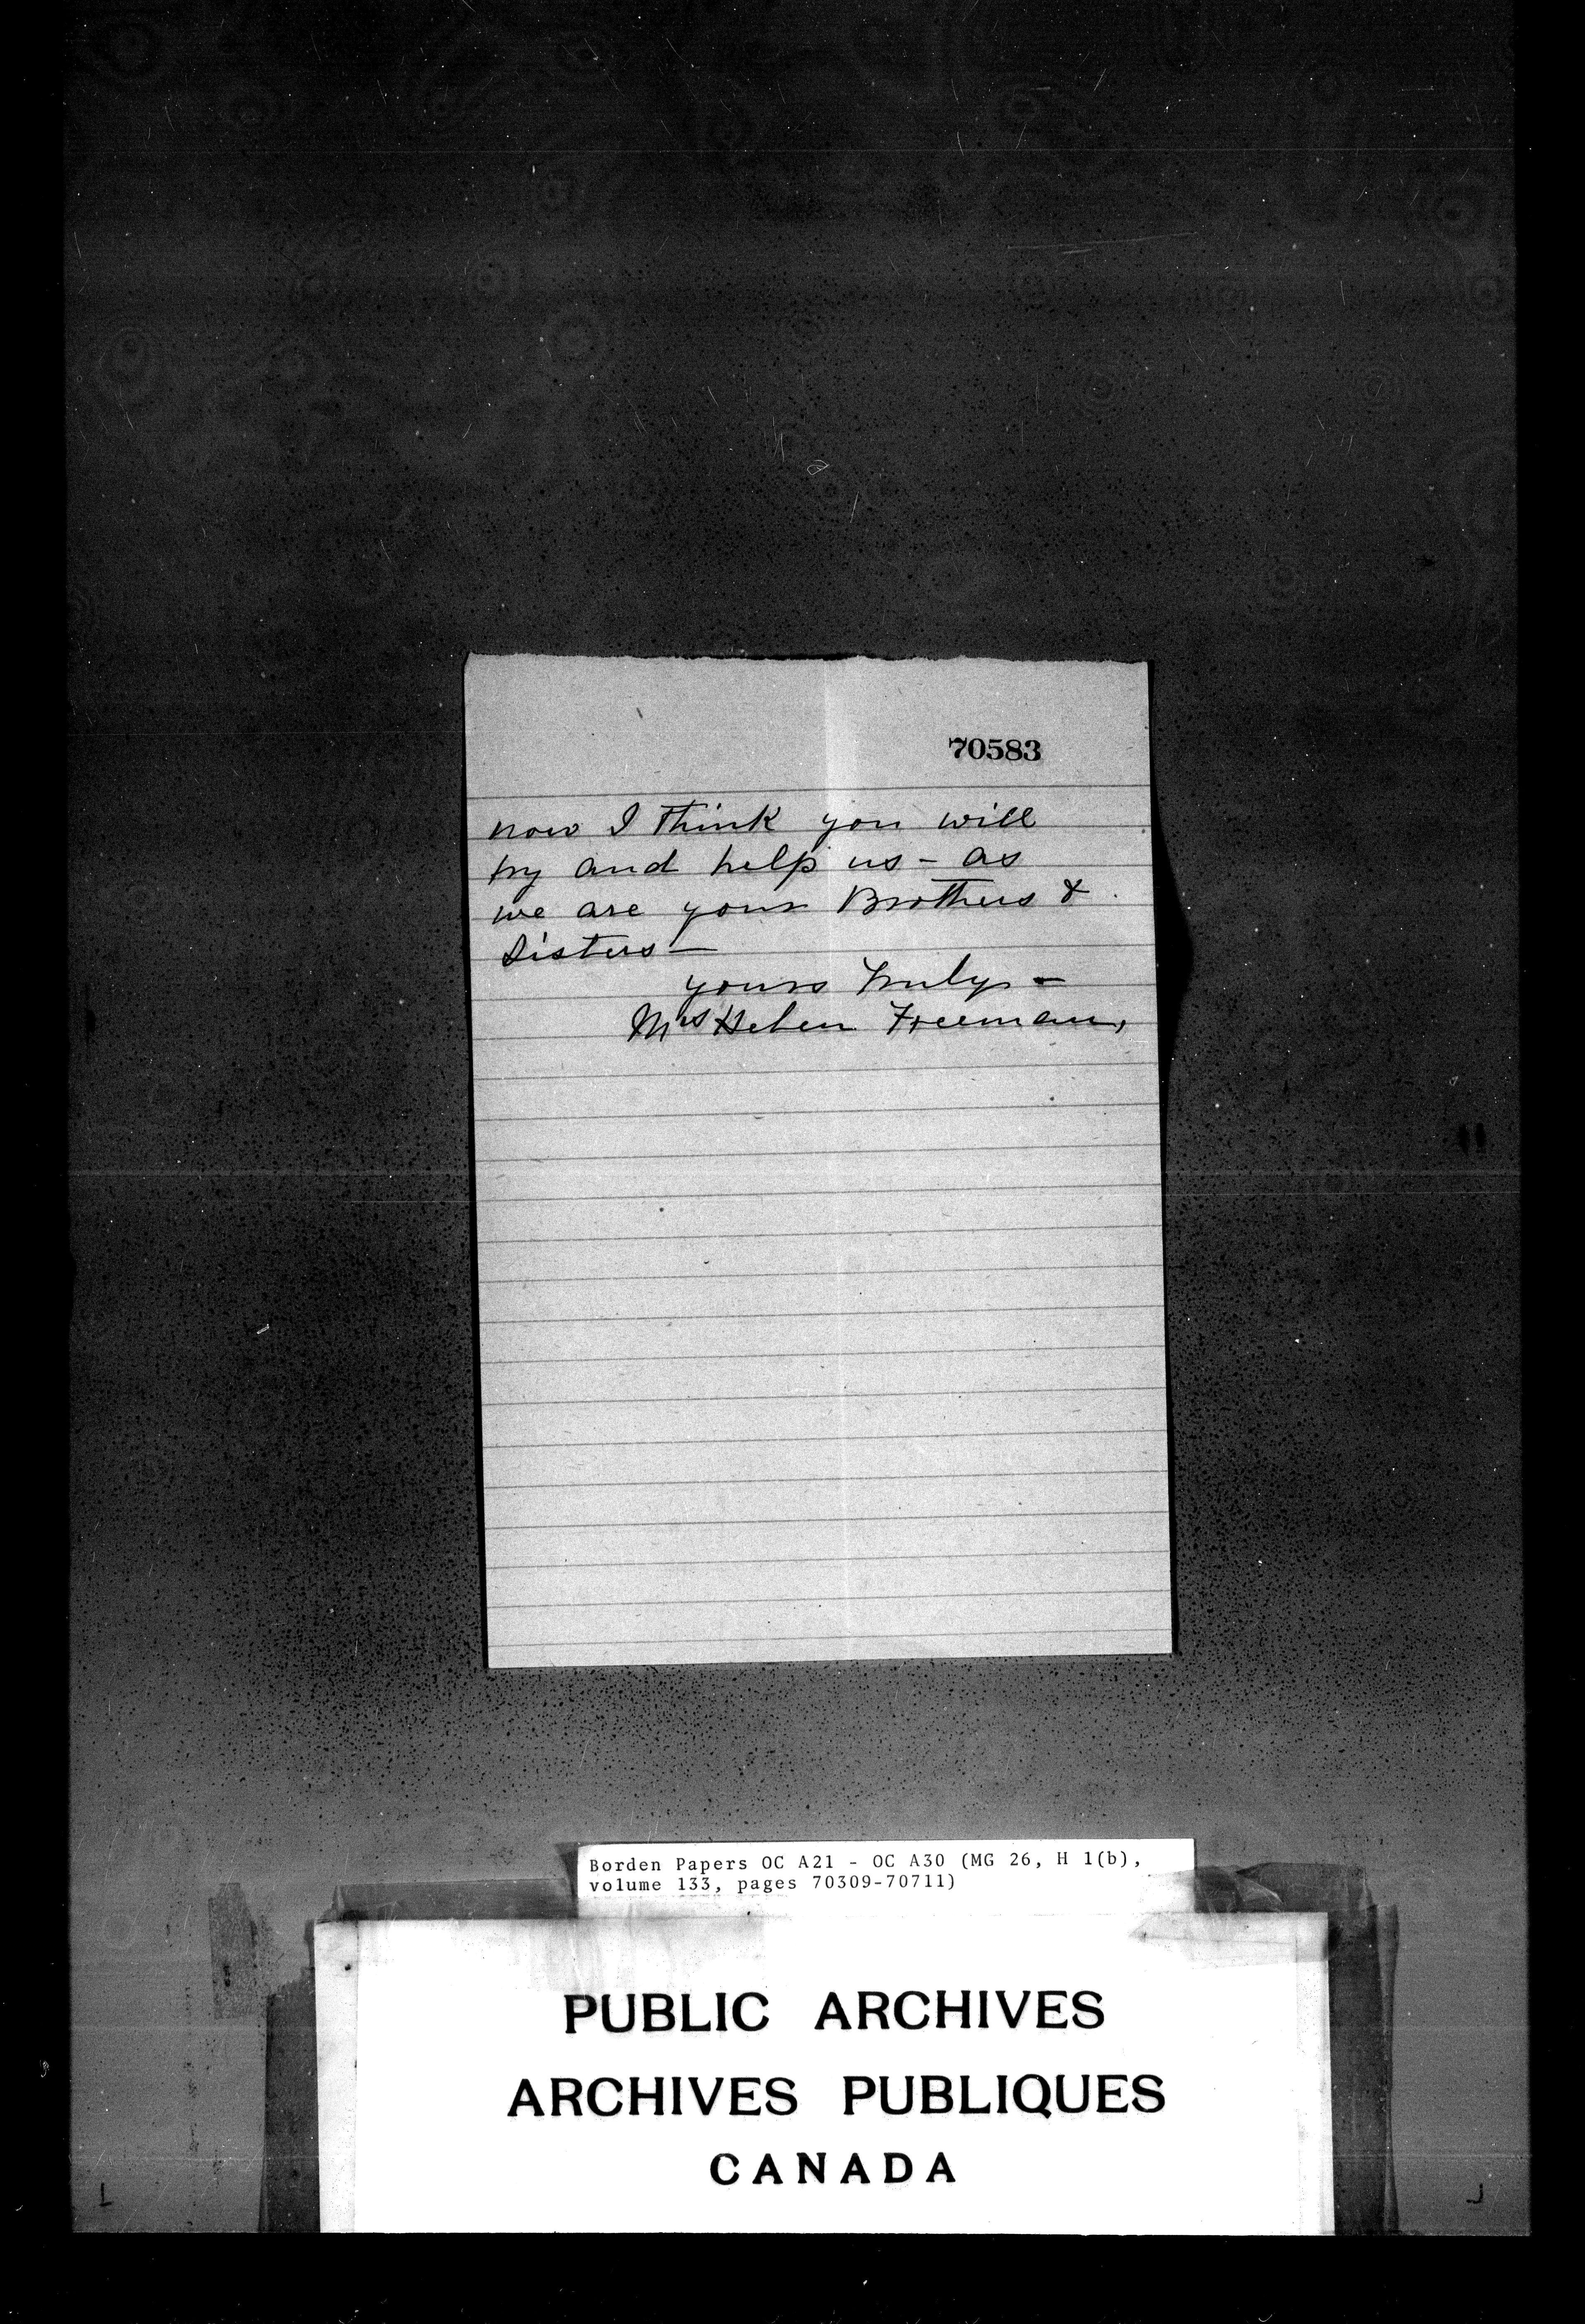 70583
now I think you will
try and help us - as
we are your Brothers &
Sisters -
yours Truly -
Mrs Helen Freeman,
Borden Papers OC A21 - OC A30 (MG 26, H 1(b),
volume 133, pages 70309-70711)
PUBLIC ARCHIVES
ARCHIVES PUBLIQUES
CANADA